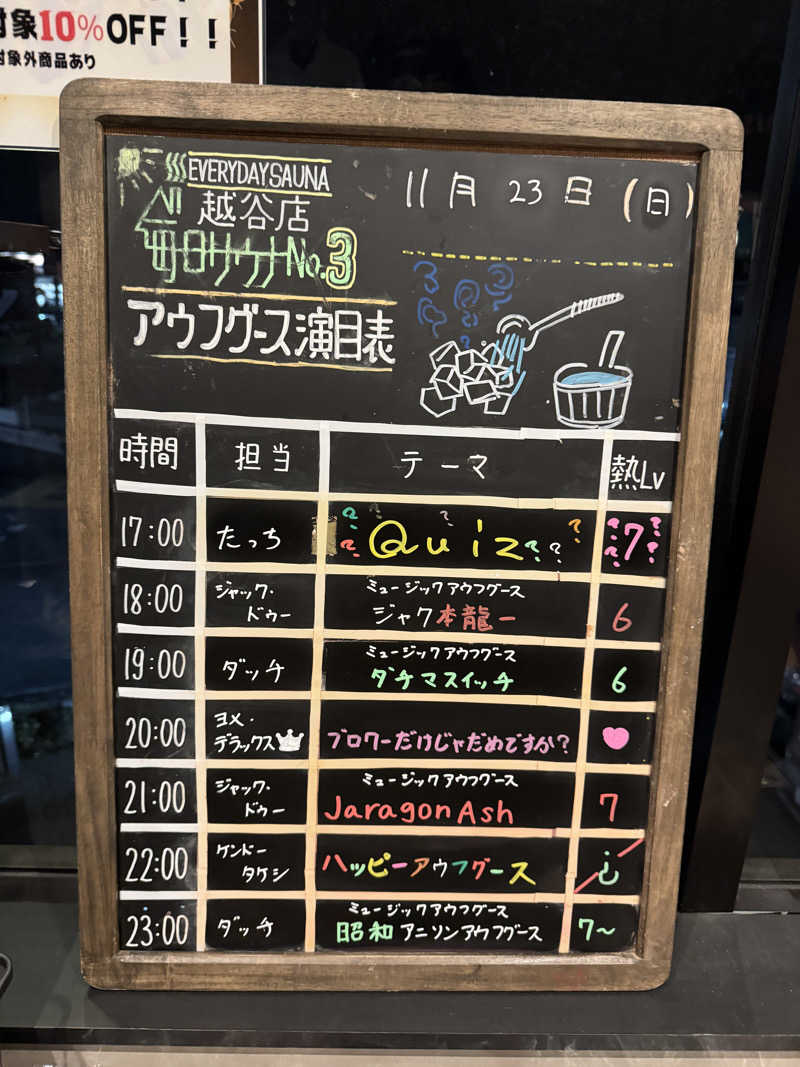 対象10%OFF!!
対象外商品あり
EVERYDAY SAUNA
越谷店
毎日サウナNo.3
アウフグース演目表
11月 23日 (日)
時間 担当 テーマ 熱Lv
17:00 たっち ? ? ? Quiz ? ? ? ? ? 7 ? ?
18:00 ジャック・ドゥー ミュージックアウフグース
ジャク本龍一 6
19:00 ダッチ ミュージックアウフグース
ダチマスイッチ 6
20:00 ヨメ・デラックス ブロワーだけじゃだめですか?
21:00 ジャック・ドゥー ミュージックアウフグース
Jaragon Ash 7
22:00 ケンドータケシ ハッピーアウフグース ¿
23:00 ダッチ ミュージックアウフグース
昭和アニソンアウフグース 7~